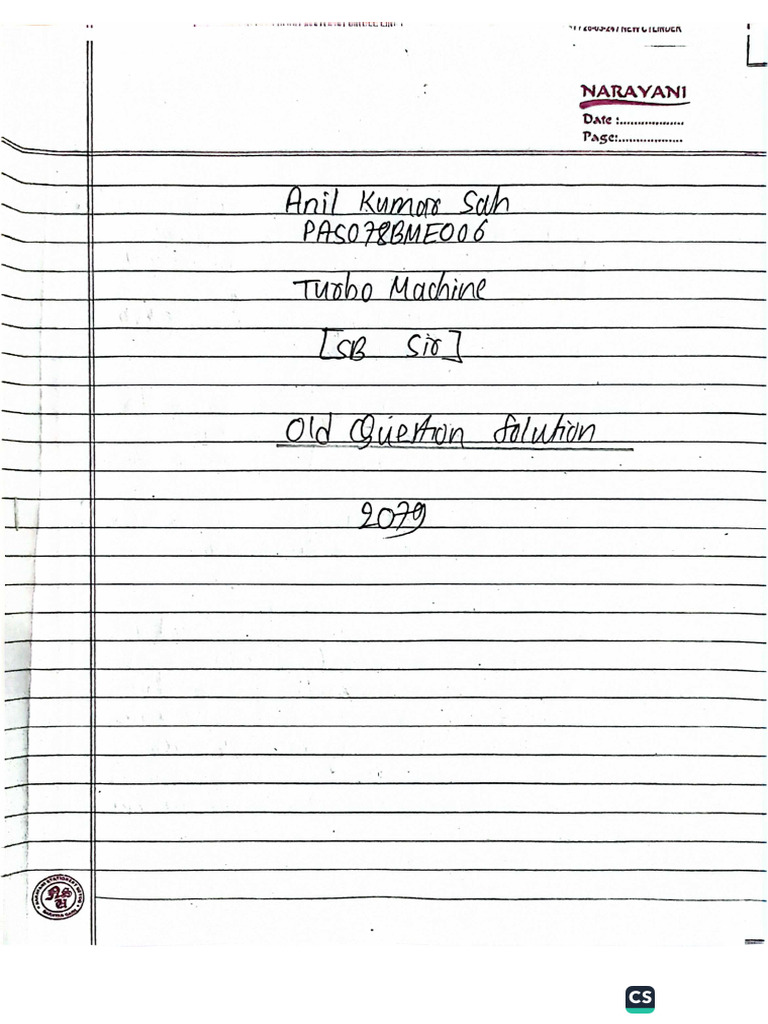 NARAYANI
Date :..................
Page:..................
Anil Kumar Sah
PAS078BME006
Turbo Machine
[SB Sir]
Old Question Solution
2079
CS